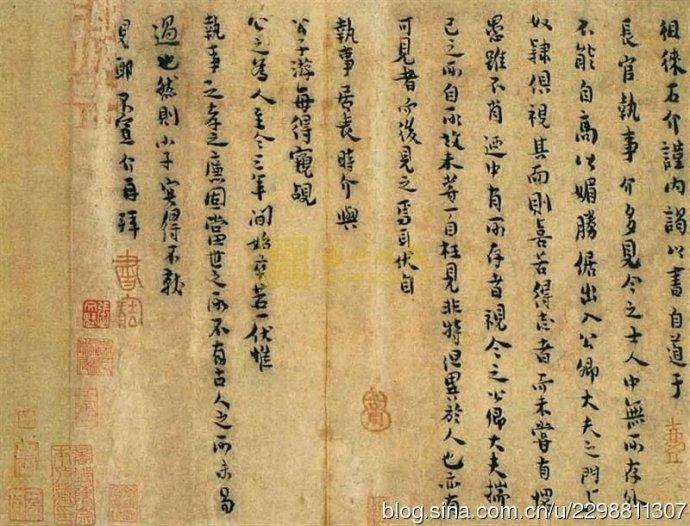 徂徕石介謹內謁以書自道于
長官執事介多見今之士人中無所存外
不能自高以媚勝倨出入公卿大夫之門與
奴隸俱視其面則喜若得志者而未嘗有愧
愚雖不肖迺中有所存者視今之公卿大夫揣
己之所自所故未嘗一自枉見非特但異於人也亦有
可見者而後見之焉耳伏自
執事居長時介與
公子游每得窺覘
公之為人至今三年間始卒若一伏惟
執事之孝之廉固當世之所不有古人之所未易
過也然則小子実得不載
見耶不宣介再拜
書寶
blog.sina.com.cn/u/2298811307